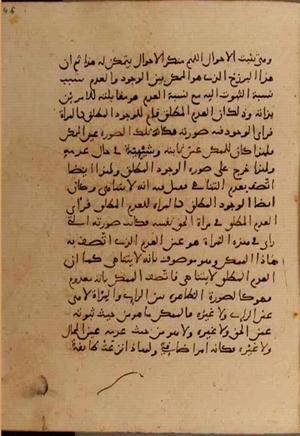 ومتى يثبت الاحوال منكر الاحوال يتمكن له هذا ثم ان
هذا البرزخ الذي هو الممكن بين الوجود والعدم سبب
نسبة الثبوت اليه مع نسبة العدم هو مقابلته للامرين
بذاته وذلك ان العدم المطلق قام للوجود المطلق كالمراة
فراى الوجود فيه صورته فكانت تلك الصورة عين الممكن
فلهذا كان للممكن عين ثابتة وشيئية في حال عدمه
ولهذا خرج على صورة الوجود المطلق ولهذا ايضا
اتصف بعدم التناهي فقيل فيه انه لا يتناهى وكان
ايضا الوجود المطلق كالمراة للعدم المطلق فراى
العدم المطلق في مراة الحق نفسه فكانت صورته التي
راى في هذه المراة هو عين العدم الذي اتصف به
هاذا الممكن وهو موصوف بانه لا يتناهى كما ان
العدم المطلق لا يتناهى فاتصف الممكن بانه معدوم
فهو كالصورة الظاهرة بين الراي والمراة لا هي
عين الراي ولا غيره فالممكن ما هو من حيث ثبوته
عين الحق ولا غيره ولا هو من حيث عدمه عين المحال
ولا غيره فكانه امر اضافي ولهاذا نزعت طايفة